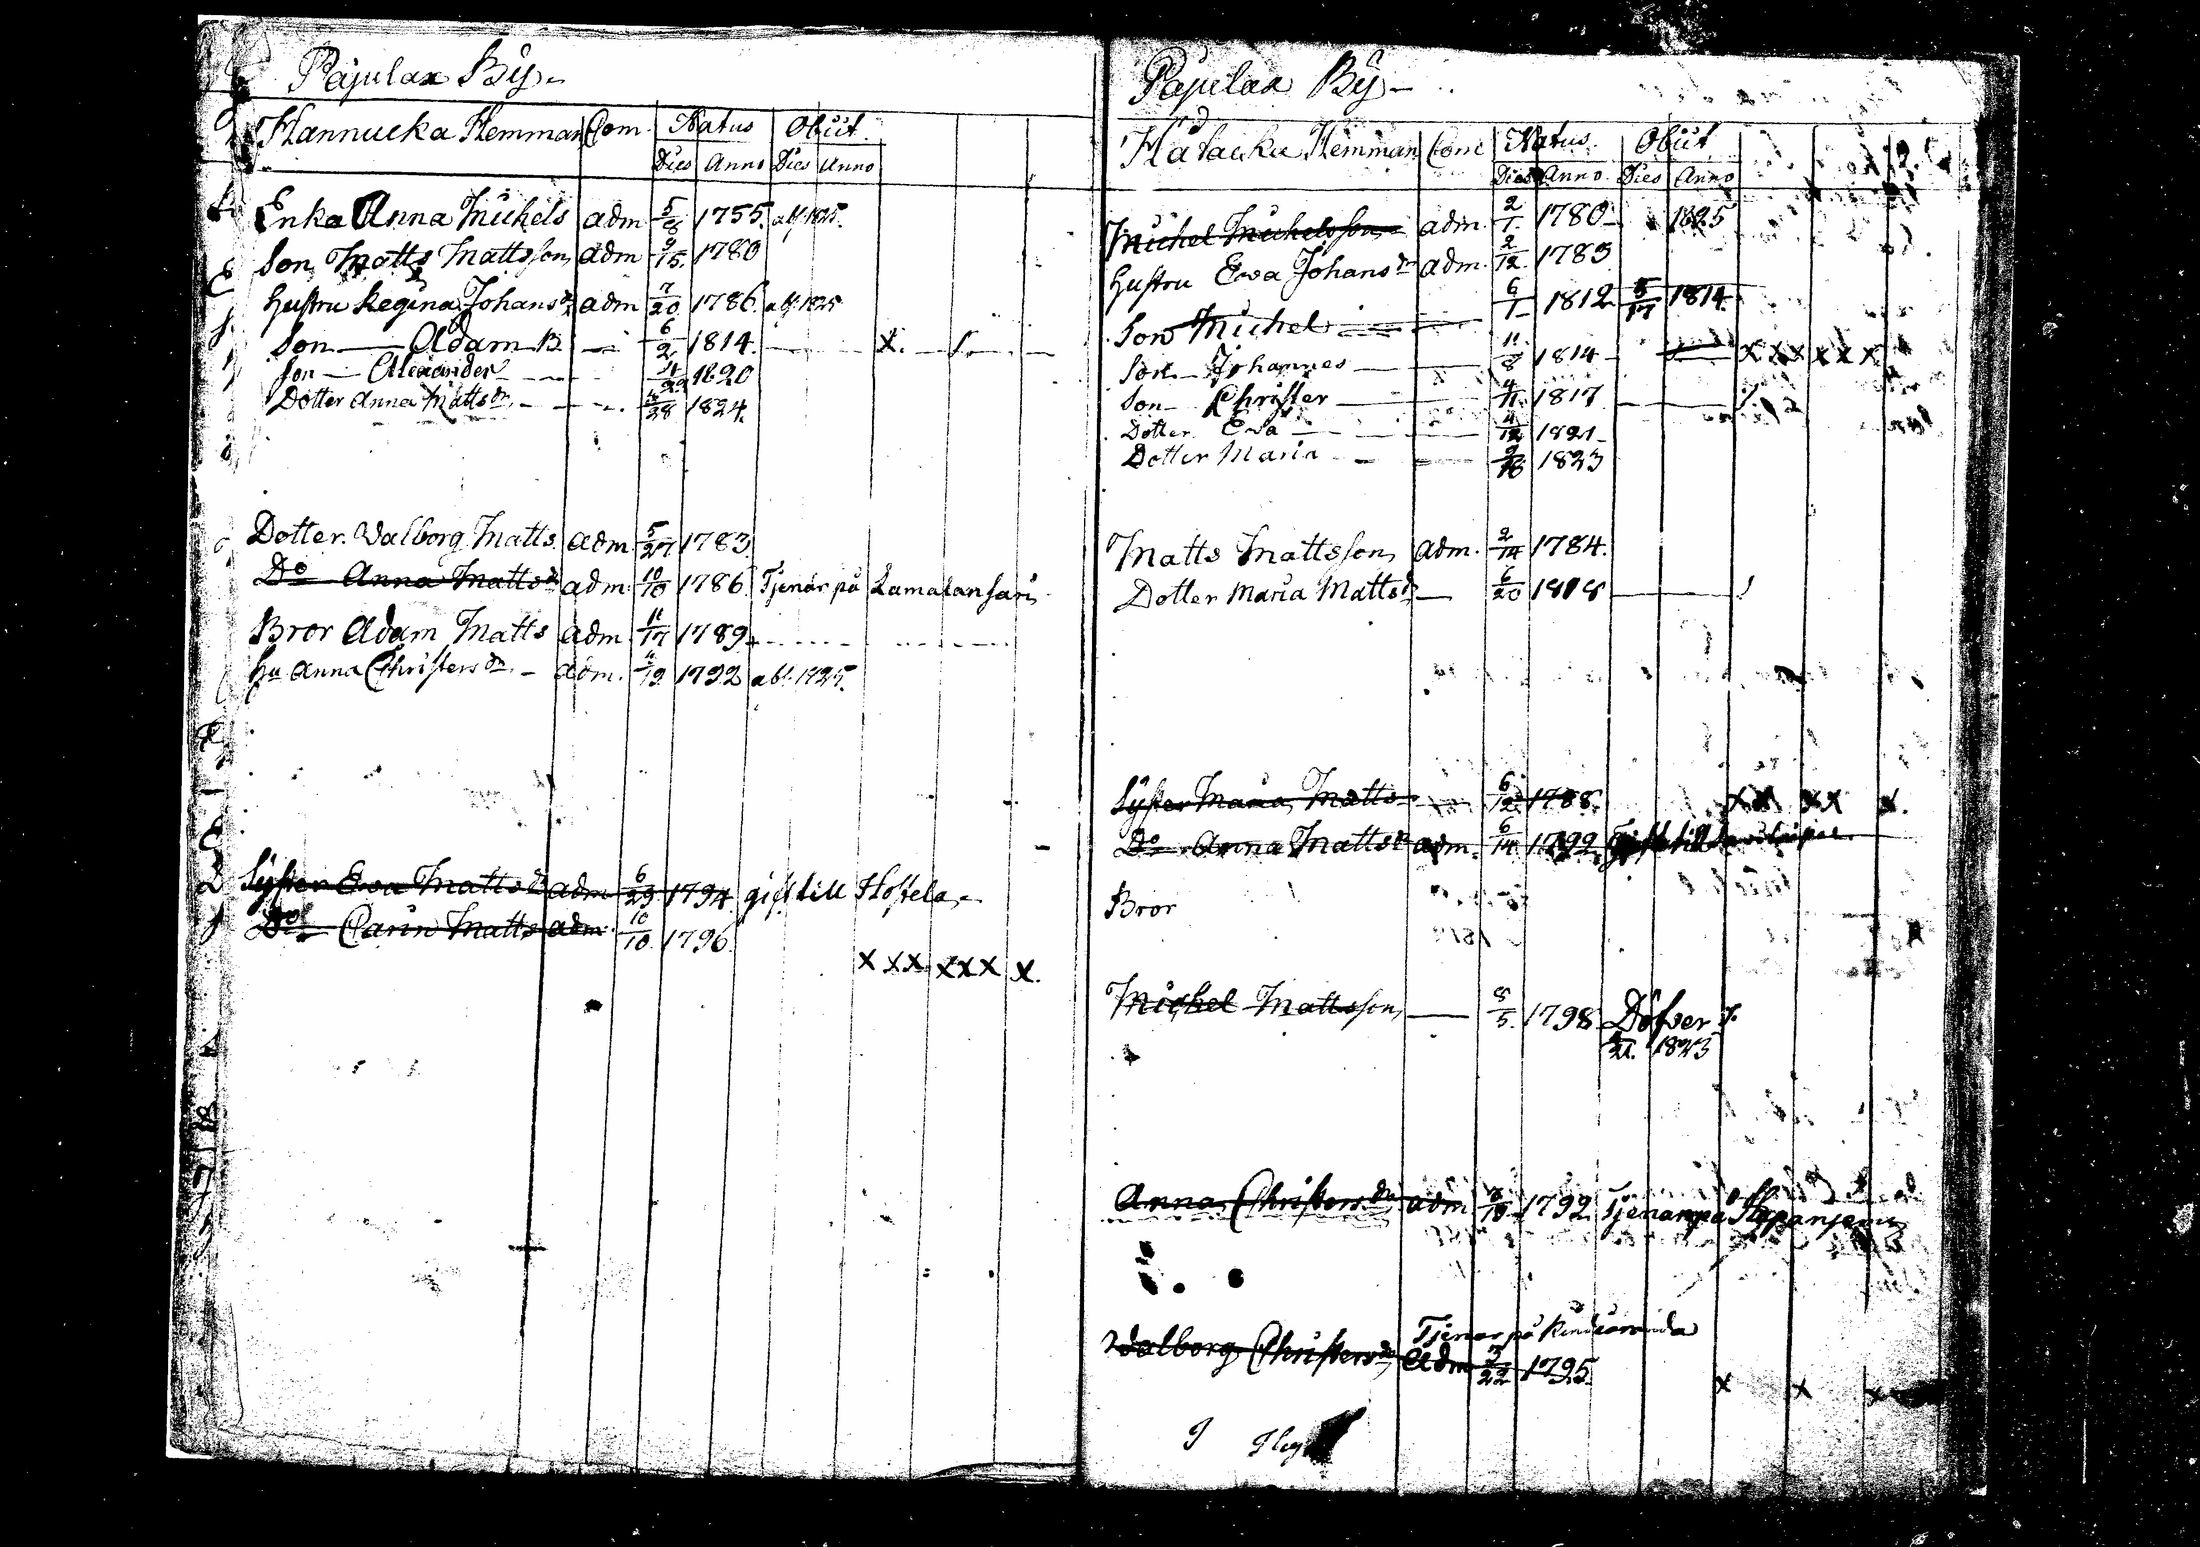 Pajulax By
Hannucka Hemman Com. Natus Obiit
Dies Anno Dies Anno
Enka Anna Michels adm 5/8 1755. abs. 1825.
Son Matts Mattsson adm 9/15. 1780
Hustru Regina Johansdr adm 7/20 1786. abs. 1825
Son Adam B. 6/2 1814. X.
Son Alexander 1820
Dotter Anna Mattsdr 28 1824.
Dotter. Walborg Matts adm. 5/27 1783
Do Anna Mattsdr adm. 10/10 1786. Tjenar på Lamalansari
Bror Adam Matts adm 11/17 1789
Hu Anna Christersdr adm. 4/19. 1792 abs. 1825.
Syster Ewa Mattsdr adm 6/29 1794. gift till Hostela
Do Carin Matts adm. 10/10. 1796.
X X X X X X X.
Pajulax By
Hatacku Hemman Com Natus. Obiit
Dies Anno Dies Anno
Michel Michelsson adm. 2/1. 1780 1825
Hustru Ewa Johansdr adm. 2/12 1783
Son Michel 6/1 1812 5/17 1814.
Son Johannes 11/8 1814 X X X X X X
Son Christer 4/11 1817
Dotter Eva 4/12 1821
Dotter Maria 1823
Matts Mattsson adm. 2/14 1784.
Dotter Maria Mattsdr 6/20 1818
Syster Maria Matts 6/12 1788. XX XX X.
Do Anna Mattsdr adm. 6/14 1792 Gift till
Bror
Michel Mattsson 5. 1798 Döfver
21. 1823
Anna Christersdr adm 4/19 1792 Tjenar på
Tjenar på
Walborg Christersdr adm 3/22 1795. X X X